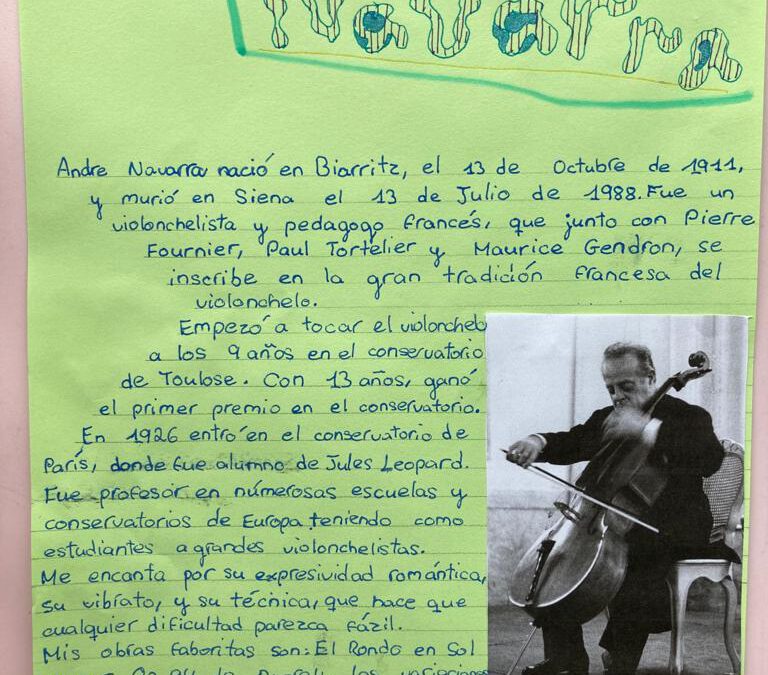 Navarra
Andre Navarra nació en Biarritz, el 13 de Octubre de 1911,
y murió en Siena el 13 de Julio de 1988. Fue un
violonchelista y pedagogo francés, que junto con Pierre
Fournier, Paul Tortelier y Maurice Gendron, se
inscribe en la gran tradición francesa del
violonchelo.
Empezó a tocar el violonchelo
a los 9 años en el conservatorio
de Toulose. Con 13 años, ganó
el primer premio en el conservatorio.
En 1926 entró en el conservatorio de
París, donde fue alumno de Jules Leopard.
Fue profesor en númerosas escuelas y
conservatorios de Europa teniendo como
estudiantes a grandes violonchelistas.
Me encanta por su expresividad romántica,
su vibrato, y su técnica, que hace que
cualquier dificultad parezca fázil.
Mis obras faboritas son: El Rondo en Sol
las variaciones